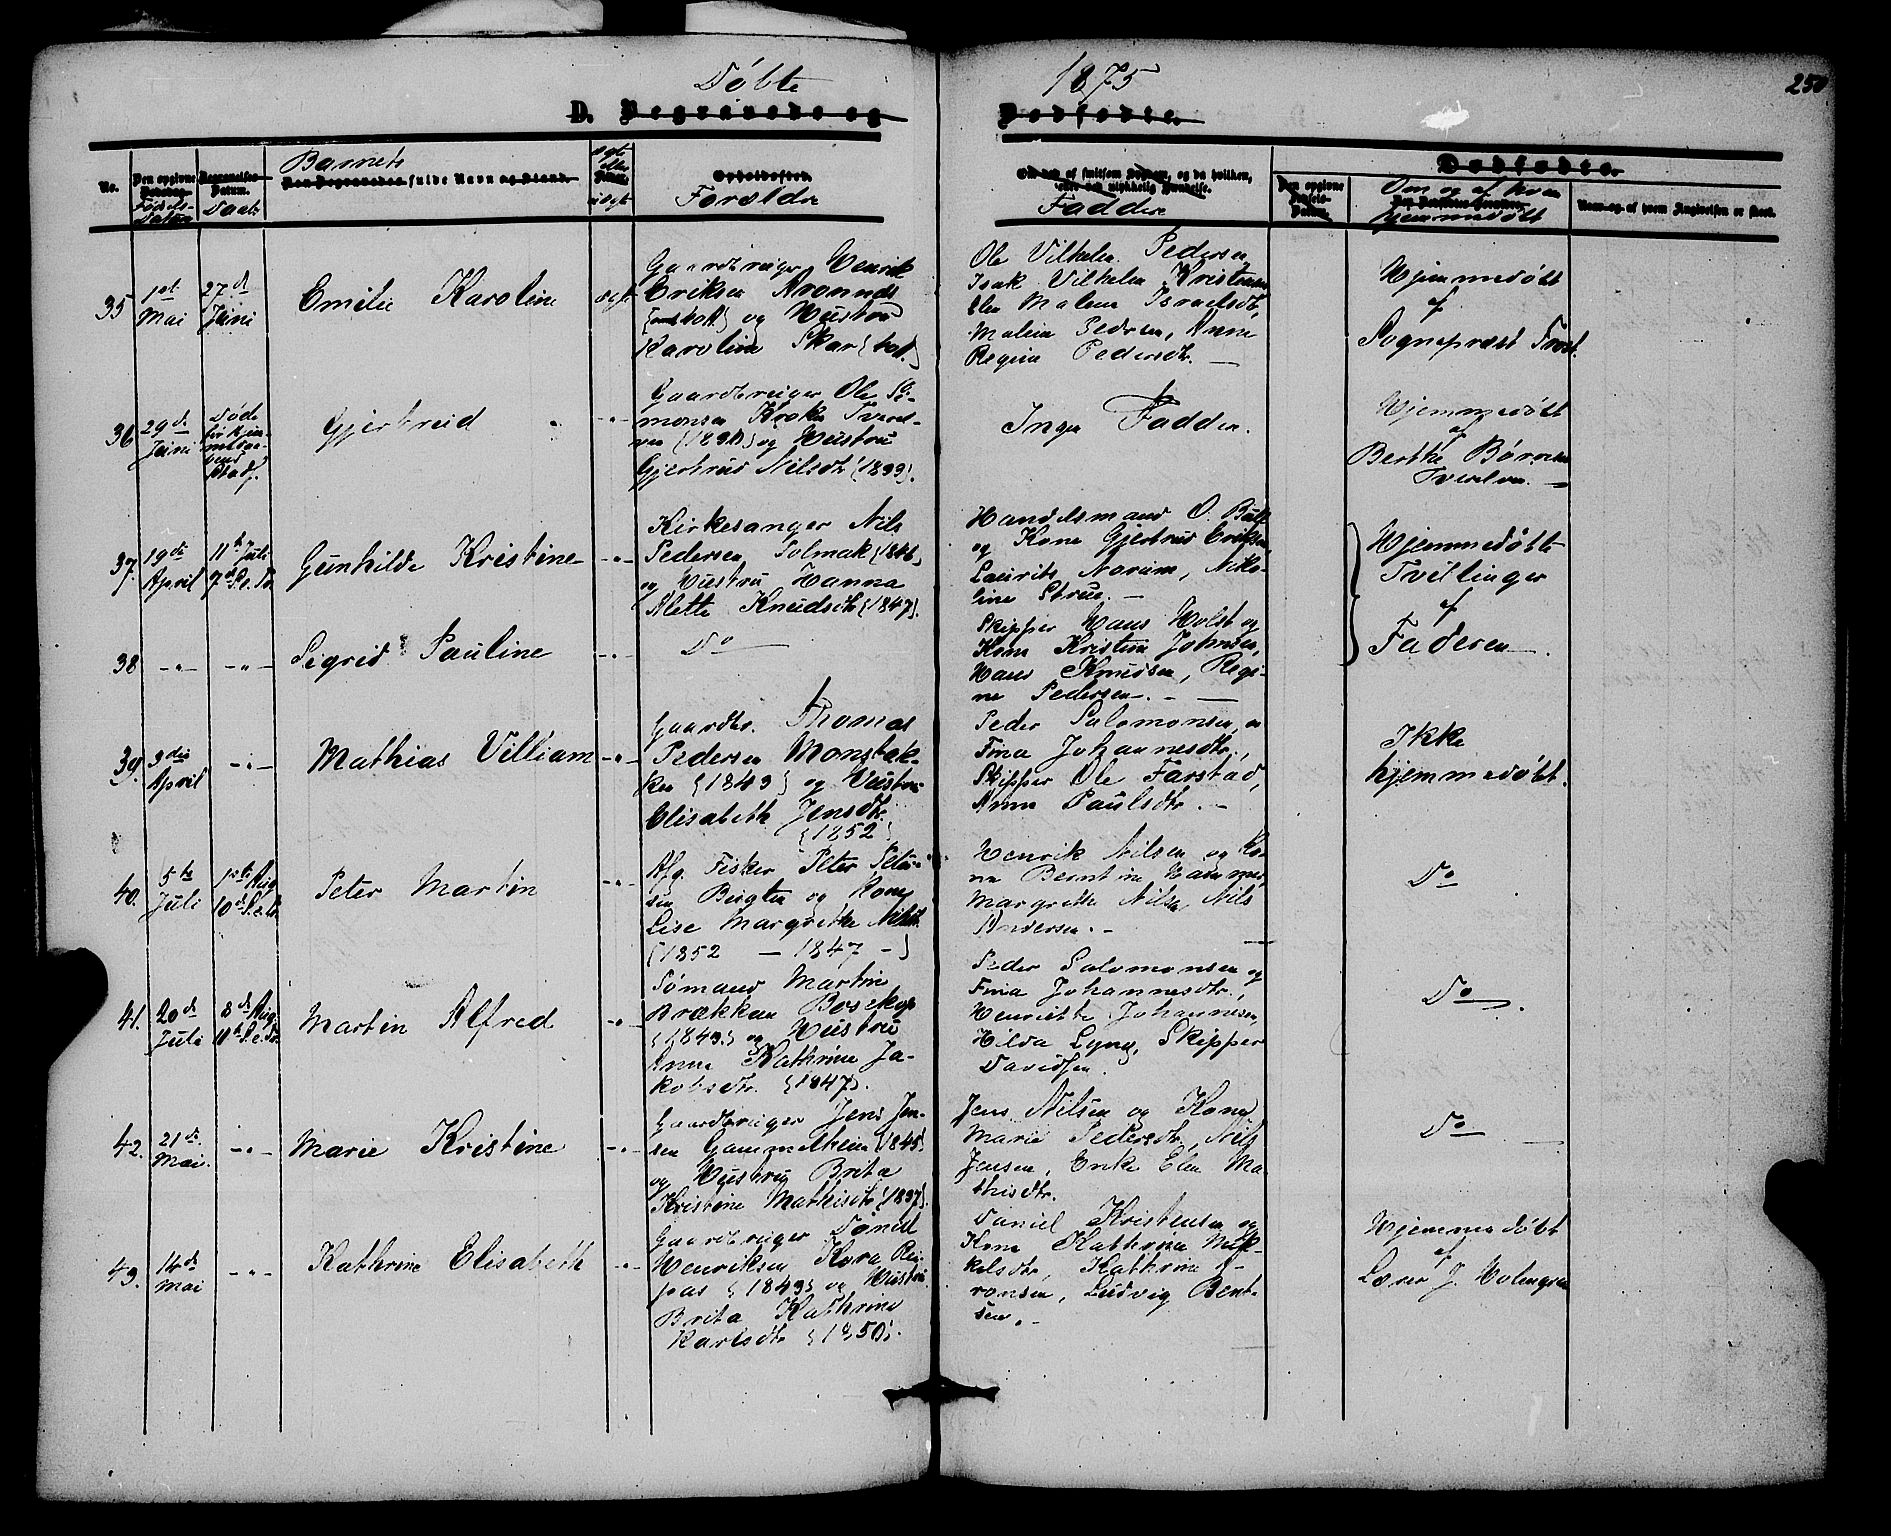 Döbte
1875
250
D. Begravede og
Dødfødte.
No.
Den opgivne
Fødsels-
Datum
Daab
Barnets
fulde Navn og Stand.
ægt
eller
uægt
Opholdssted.
Forældre
Om død af smitsom Sygdom, og da hvilken,
eller ved ulykkelig Hændelse.
Faddere
Dødfødte.
Den opgivne
Fødsels-
Datum.
Om og af hvem
hjemmedöbt
Navn og af hvem Angivelsen er skeet.
35
1ste
Mai
27de
Juni
Emilie Karoline
ægt
Gaardbruger Henrik
Eriksen
og Hustru
Karoline Skar
Ole Vilhelm Pedersen
Isak Vilhelm Kristensen
Elen Malene Israelsdtr,
Malene Pedersen, Anne
Regine Pedersdtr.
Hjemmedöbt
af
Sognepræst
36
29de
Juni
Døde
Gjertrud
Gaardbruger Ole Si-
monsen Tverel-
ven og Hustru
Gjertrud Nilsdtr
Ingen Faddere.
Hjemmedöbt
af
Berthe
Tverelven
37.
19de
April
11te Juli
7de S. e. Tr.
Gunhilde Kristine
Kirkesanger Nils
Pedersen Polmak {1846}
og Hustru Hanna
Alette Knudsdtr {1847}.
Handelsmand O. Bull
og Kone Gjertrud Eriksen,
Laurits Norum, Niko-
line Strue.
Hjemmedöbte
Tvillinger
af
Faderen.
38
Sigrid Pauline
Do
Skipper Hans Holst og
Kone Kristine Johnsen,
Hans Knudsen, Regi-
ne Pedersen.
39.
3die
April
Mathias Villiam
Gaardbr. Thomas
Pedersen Monsbak-
ken {1843} og Hustru
Elisabeth Jensdtr.
{1852}
Peder Salomonsen og
Fina Johannesdtr.,
Skipper Ole Farstad,
Anne Paulsdtr.
Ikke
hjemmedöbt.
40.
5te
Juli
1ste Aug.
10de S. e. Tr.
Peter Martin
Afg. Fisker Peter Peter-
sen og Kone
Lise Margrethe
{1852 — 1847 -}
Henrik Nilsen og Ko-
ne Berntine Hammer,
Margrethe Nilsen, Nils
Andersen.
Do
41.
20de
Juli
8de Aug.
11te S. e. Tr.
Martin Alfred
Sömand Martin
Brækkan Bosekop
{1849} og Hustru
Anne Kathrine Ja-
kobsdtr. {1847}.
Peder Salomonsen og
Fina Johannesdtr.,
Henriette Johannesen,
Hilda Lyng, Skipper
Davidsen.
Do
42.
21de
Mai.
Marie Kristine
Gaardbruger Jens Jen-
sen Gammelheim {1845}
og Hustru Brita
Kristine Mathisdtr {1837}.
Jens Nilsen og Kone
Marie Pedersdtr, Nils
Jensen, Enke Elen Ma-
thisdtr.
Do
43.
14de
Mai
Kathrine Elisabeth
Gaardbruger Daniel
Henriksen Kora Rai-
pas {1849} og Hustru
Brita Kathrine
Karlsdtr {1850}.
Daniel Kristensen og
Kone Kathrine Mik-
kelsdtr, Kathrine A-
ronsen, Ludvig Bent-
sen.
Hjemmedöbt
af
Lærer J. Holmgren